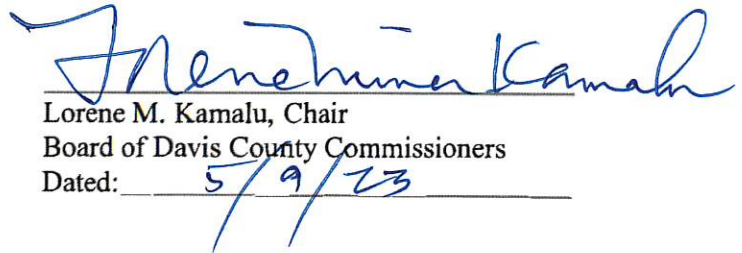 Lorene Miner Kamalu
Lorene M. Kamalu, Chair
Board of Davis County Commissioners
Dated: 5/9/23